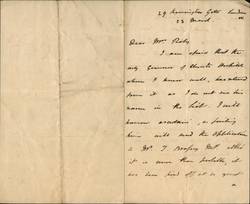 29 Kennington Gate London
23 March
Dear Mrs
I am afraid that the
only Governor of Christ's Hospital
whom I know well, has retired
from it as I do not see his
name in the list. I will
however ascertain, on finding
him will send the application
to Mr. T. Brassey M.P. altho'
it is more than probable, it
has been paid off at a great